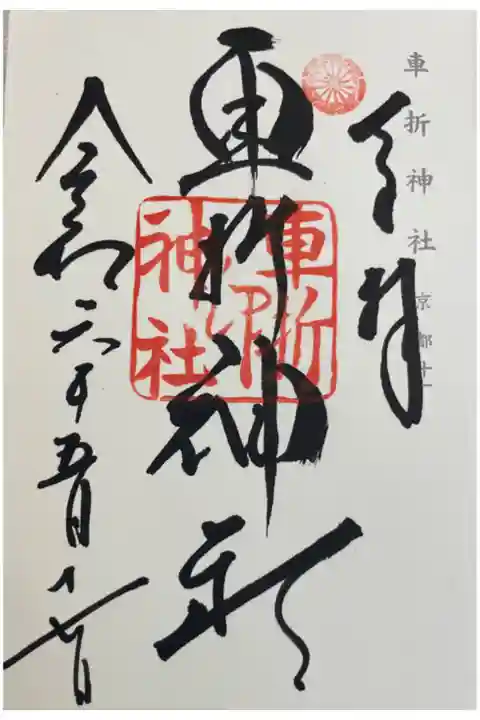 車折神社 京都
奉拝
車折神社
車折
神社
令和六年五月十七日